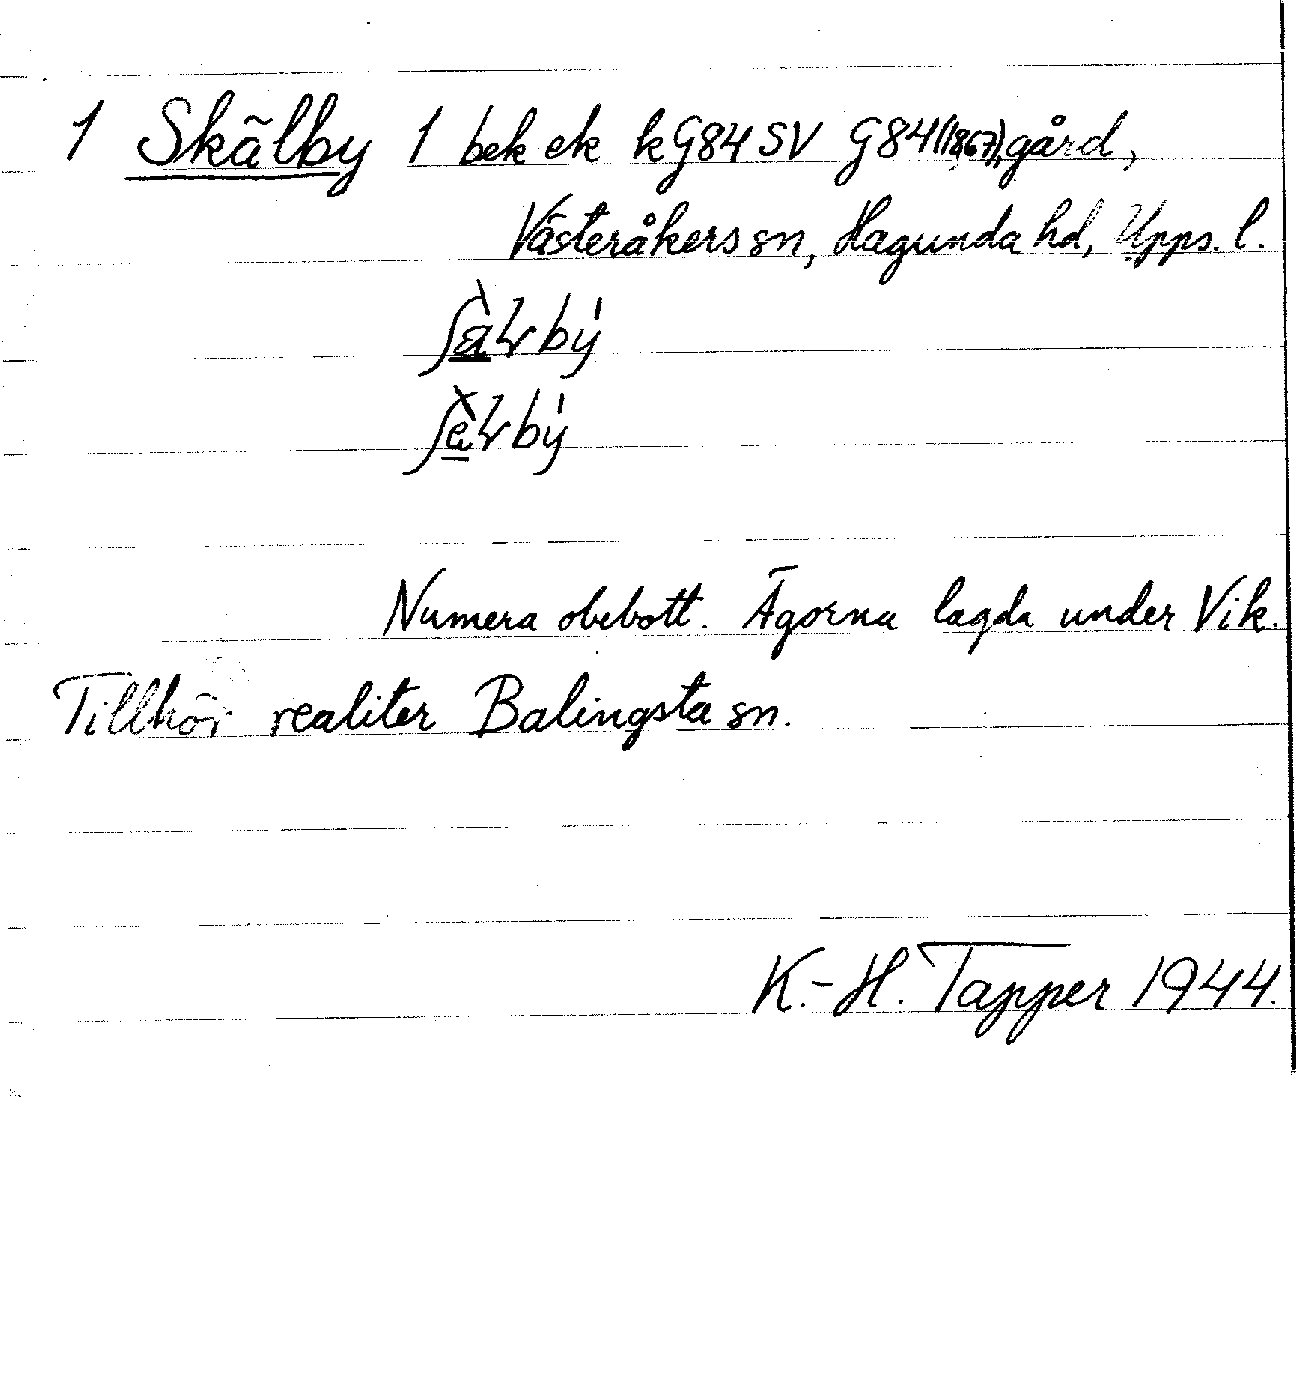 1 Skälby 1 bek ek k G84 SV G84 (1867), gård,
Västeråkers sn, Hagunda hd, Upps. l.
Numera obebott. Ägorna lagda under Vik.
Tillhör realiter Balingsta sn.
K.-H. Tapper 1944.